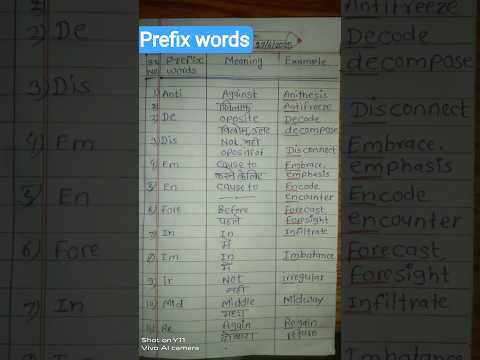 Prefix words
27/6/2025
Sr. No. Prefix words Meaning Example
1) Anti Against Anithesis
खिलाफ Antifreeze
2) De opposite Decode
विलोम, उलट decompose
3) Dis Not, नहीं
opposite Disconnect
4) Em Cause to Embrace,
करने के लिए emphasis
5) En Cause to Encode
encounter
6) Fore Before Forecast
पहले Foresight
7) In In Infiltrate
में
8) Im In Imbalance
में
9) Ir Not irregular
नहीं
10) Mid Middle Midway
मध्य
11) Re Again Regain
दोबारा return
Shot on Y11
Vivo AI camera
2) De
3) Dis
4) Em
5) En
6) Fore
7) In
Antifreeze
Decode
decompose
Disconnect
Embrace,
emphasis
Encode
encounter
Forecast
Foresight
Infiltrate